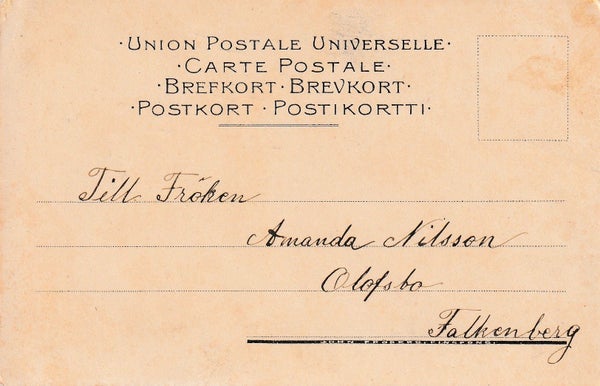 ·UNION POSTALE UNIVERSELLE·
·CARTE POSTALE·
·BREFKORT·BREVKORT·
·POSTKORT·POSTIKORTTI·
Till Fröken
Amanda Nilsson
Olofsbo
Falkenberg
JOHN FRÖBERG, FINSPONG.